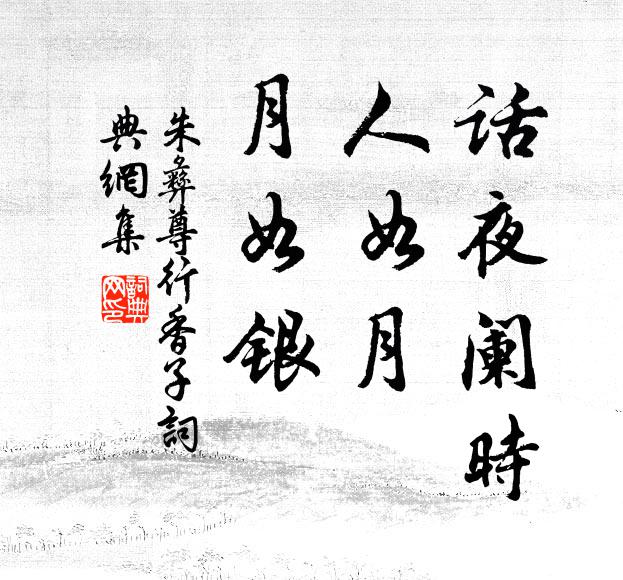 话夜阑時
人如月
月如银
朱彝尊行香子詞
典網集
詞典
网印